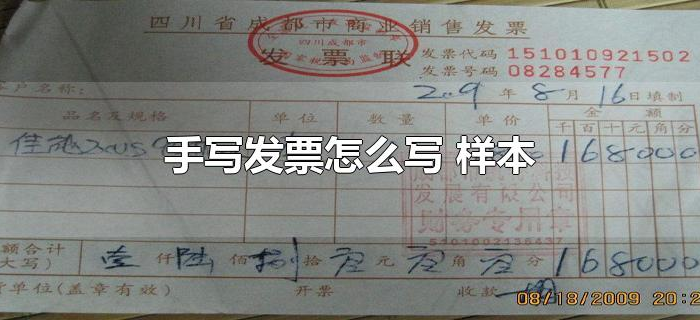 四川省成都市商业销售发票
四川成都市
发票联
发票代码 151010921502
发票号码 08284577
户名称: 2009 年 8 月 16 日填制
品名及规格 单位 数量 单价 金额
千 百 十 元 角 分
佳能 168000
手写发票怎么写 样本
发展有限公司
财务专用章
5101002136437
额合计
大写) 壹仟陆佰捌拾零元零角零分 168000
单位(盖章有效) 开票 收款
08/18/2009 20:2